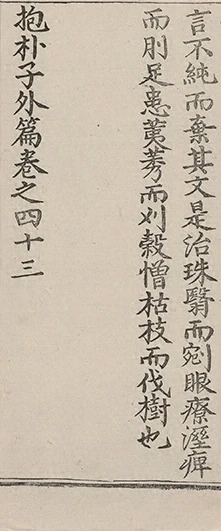 言不純而棄其文是治珠翳而剜眼療溼痺
而刖足患荑莠而刈穀憎枯枝而伐樹也
抱朴子外篇卷之四十三